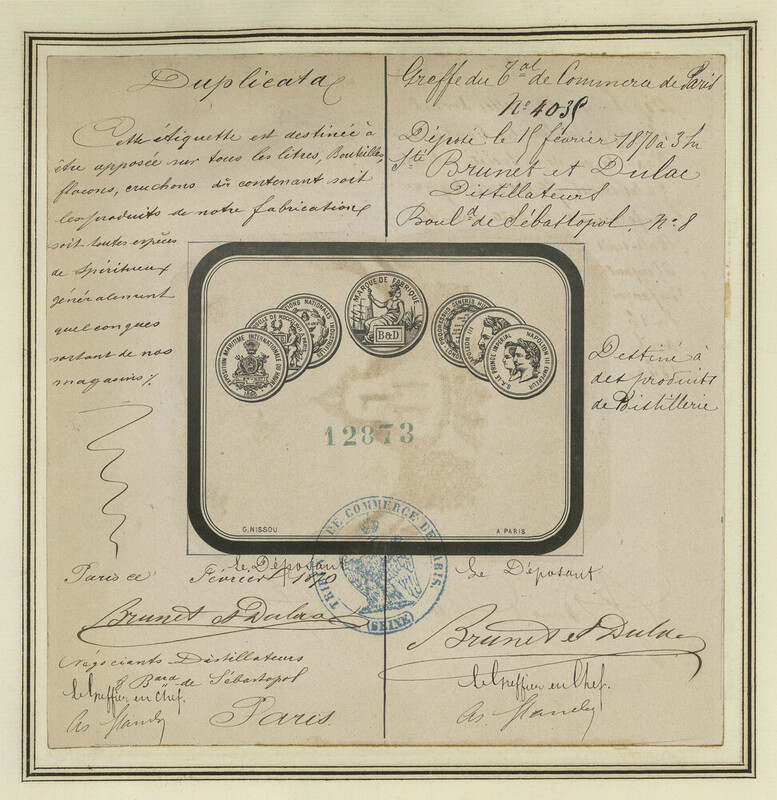 Duplicata
Cette étiquette est destinée à
être apposée sur tous les litres, Bouteilles,
flacons, cruchons contenant soit
les produits de notre fabrication
soit toutes espèces
de spiritueux
généralement
quelconques
sortant de nos
magasins
Greffe du Tal de Commerce de Paris
No 4035
Déposé le 15 février 1870 à 3 h
Sté Brunet et Dulac
Distillateurs
Boulд de Sébastopol, No 8
EXPOSITION MARITIME INTERNATIONALE DU HAVRE
1868
NATIONALES
MARQUE DE FABRIQUE
B&D
NAPOLEON III
S.A. LE PRINCE IMPERIAL
NAPOLEON III EMPEREUR
Destiné à
des produits
de Distillerie
12873
G. NISSOU
A PARIS
TRIBUNAL DE COMMERCE DE PARIS.
(SEINE)
le Déposant
Paris ce Février 1870
Brunet et Dulac
Négociants Distillateurs
8 Bard de Sébastopol
Le Greffier en Chef.
Paris
Le Déposant
Brunet et Dulac
Le Greffier en Chef.